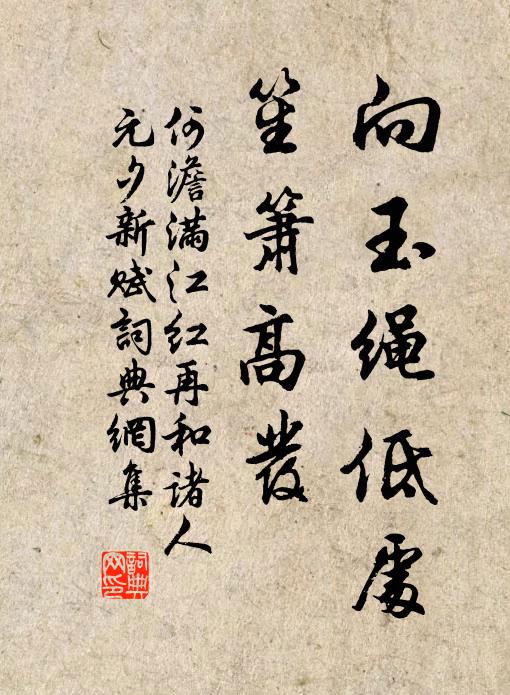 向玉绳低處
笙簫高發
何澹满江红再和诸人
元夕新赋詞典網集
詞典网印